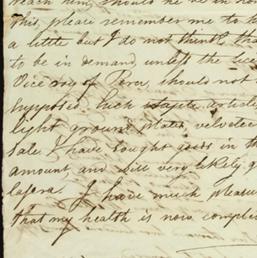 reach him, should he be in
This, please remember me to
a little but I do not think tha
to be in demand, unless the
Vice roy of Peru, should not
supposed. Such articles
light ground plates, velvetee
sale. I have bought goods in th
amount, and will very likely
I have much pleasu
that my health is now comple